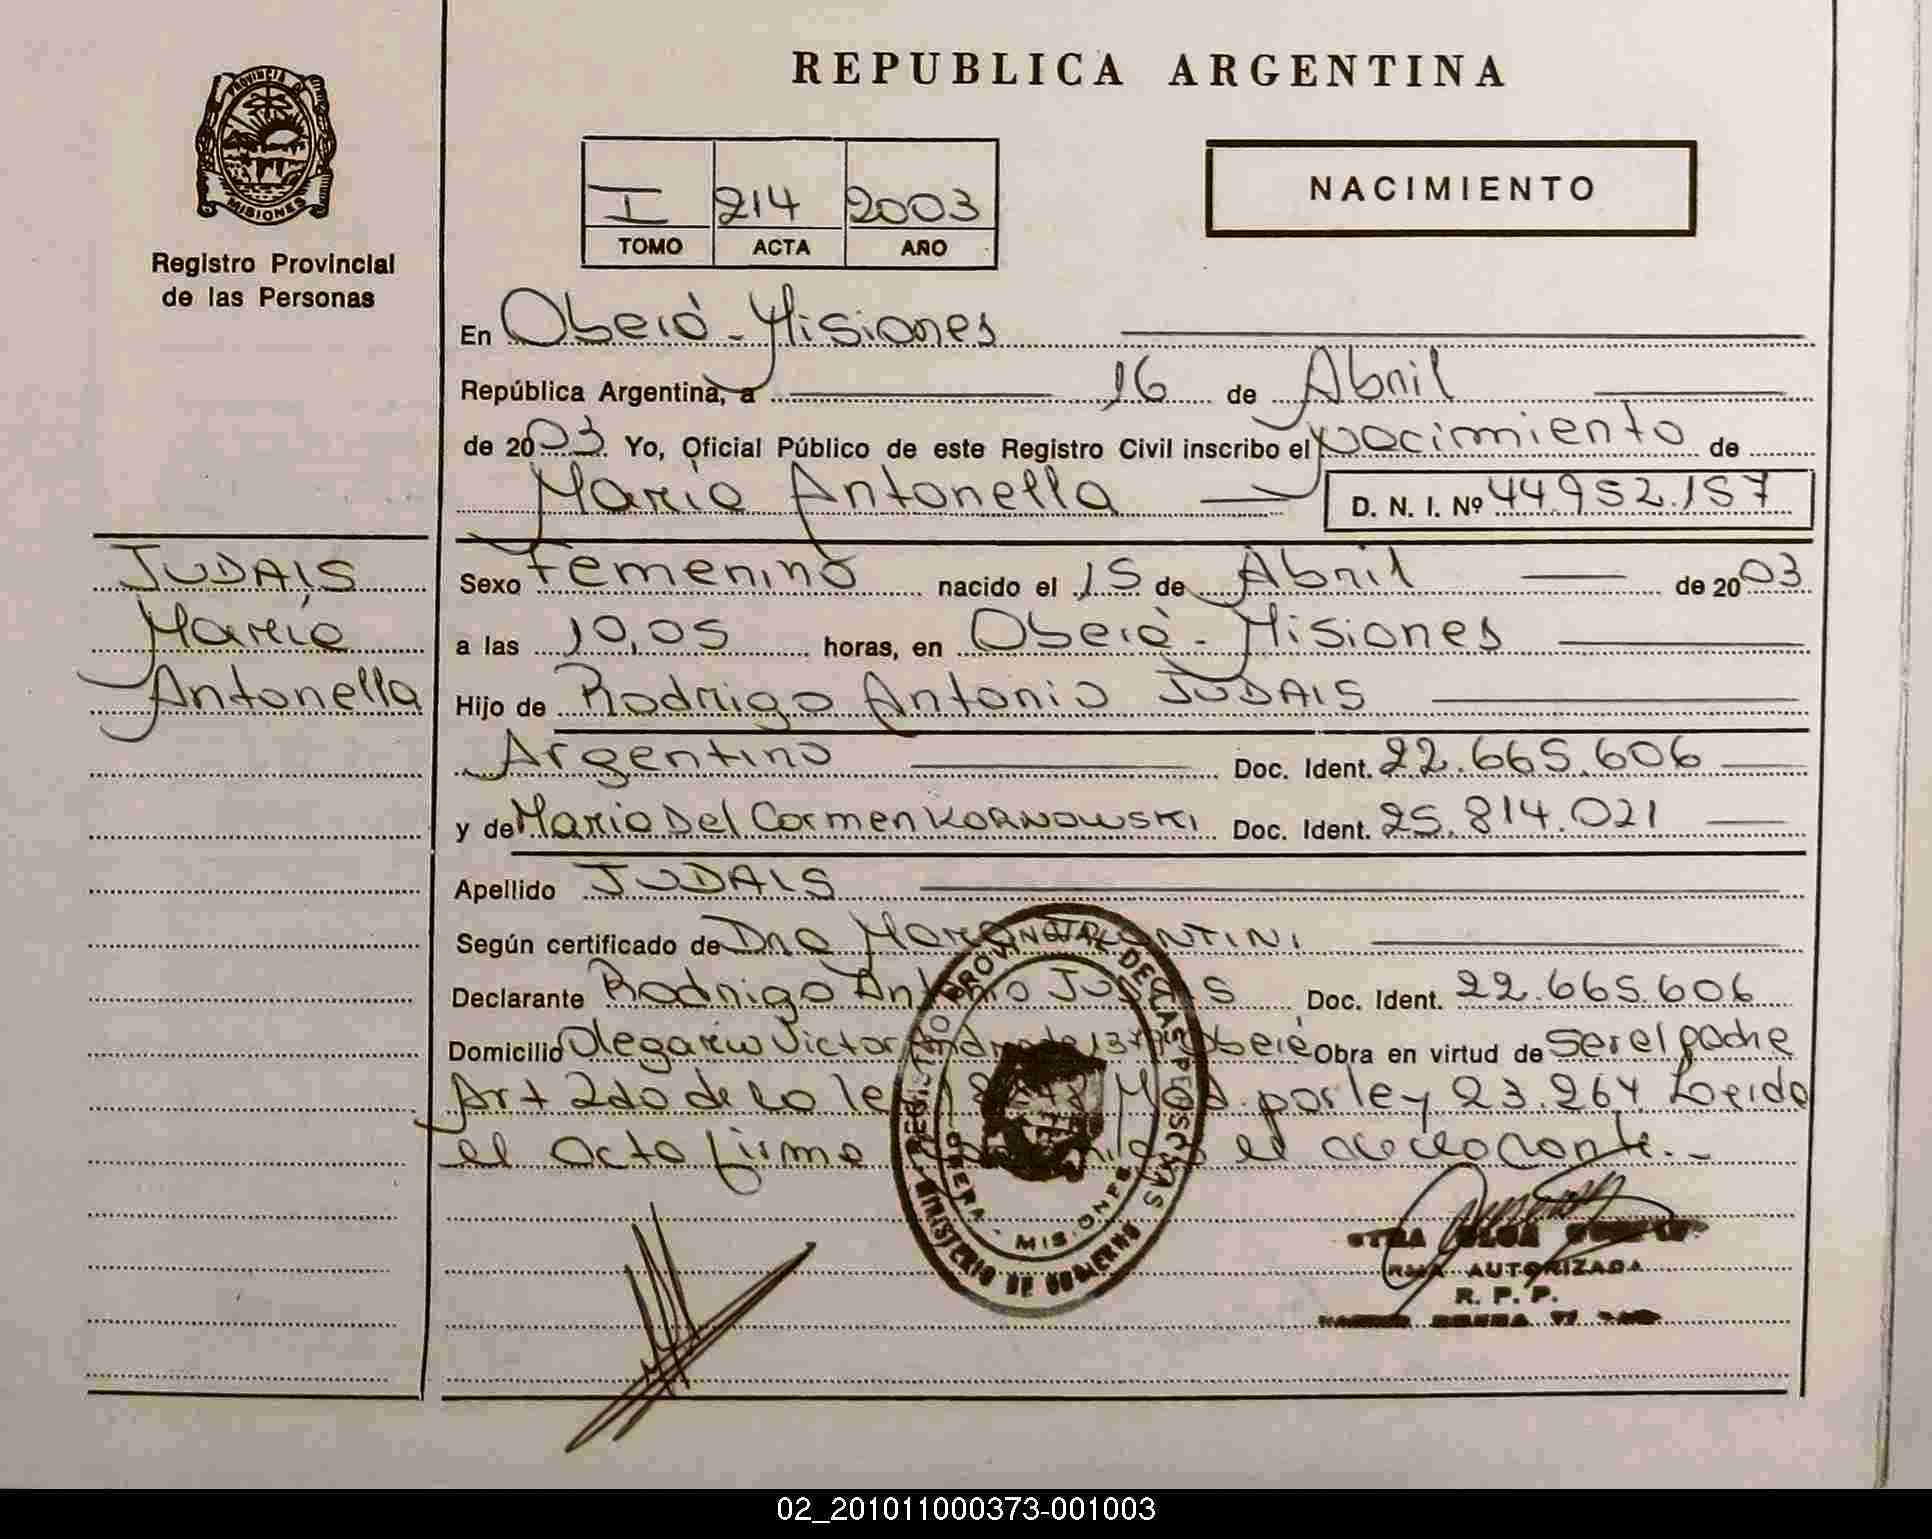 REPUBLICA ARGENTINA
PROVINCIA DE
MISIONES
Registro Provincial
de las Personas
I 214 2003
TOMO ACTA AÑO
NACIMIENTO
En Oberá - Misiones
República Argentina, a 16 de Abril
de 2003 Yo, Oficial Público de este Registro Civil inscribo el nacimiento de
María Antonella D. N. I. Nº 44.952.157
JUDAIS
María
Antonella
Sexo Femenino nacido el 15 de Abril de 2003
a las 10,05 horas, en Oberá - Misiones
Hijo de Rodrigo Antonio JUDAIS
Argentino Doc. Ident. 22.665.606
y de María Del Carmen KORNOWSKI Doc. Ident. 25.814.021
Apellido JUDAIS
Según certificado de Dra
Declarante Rodrigo Antonio JUDAIS Doc. Ident. 22.665.606
Domicilio Olegario Victor Andrade Oberá Obra en virtud de Ser el padre
Art 2do de la ley Mod. por ley 23.264 Leída
el acta firma el declarante.-
REGISTRO PROVINCIAL DE LAS PERSONAS
MINISTERIO DE GOBIERNO
OBERA - MISIONES
AUTORIZADA
R. P. P.
02_201011000373-001003